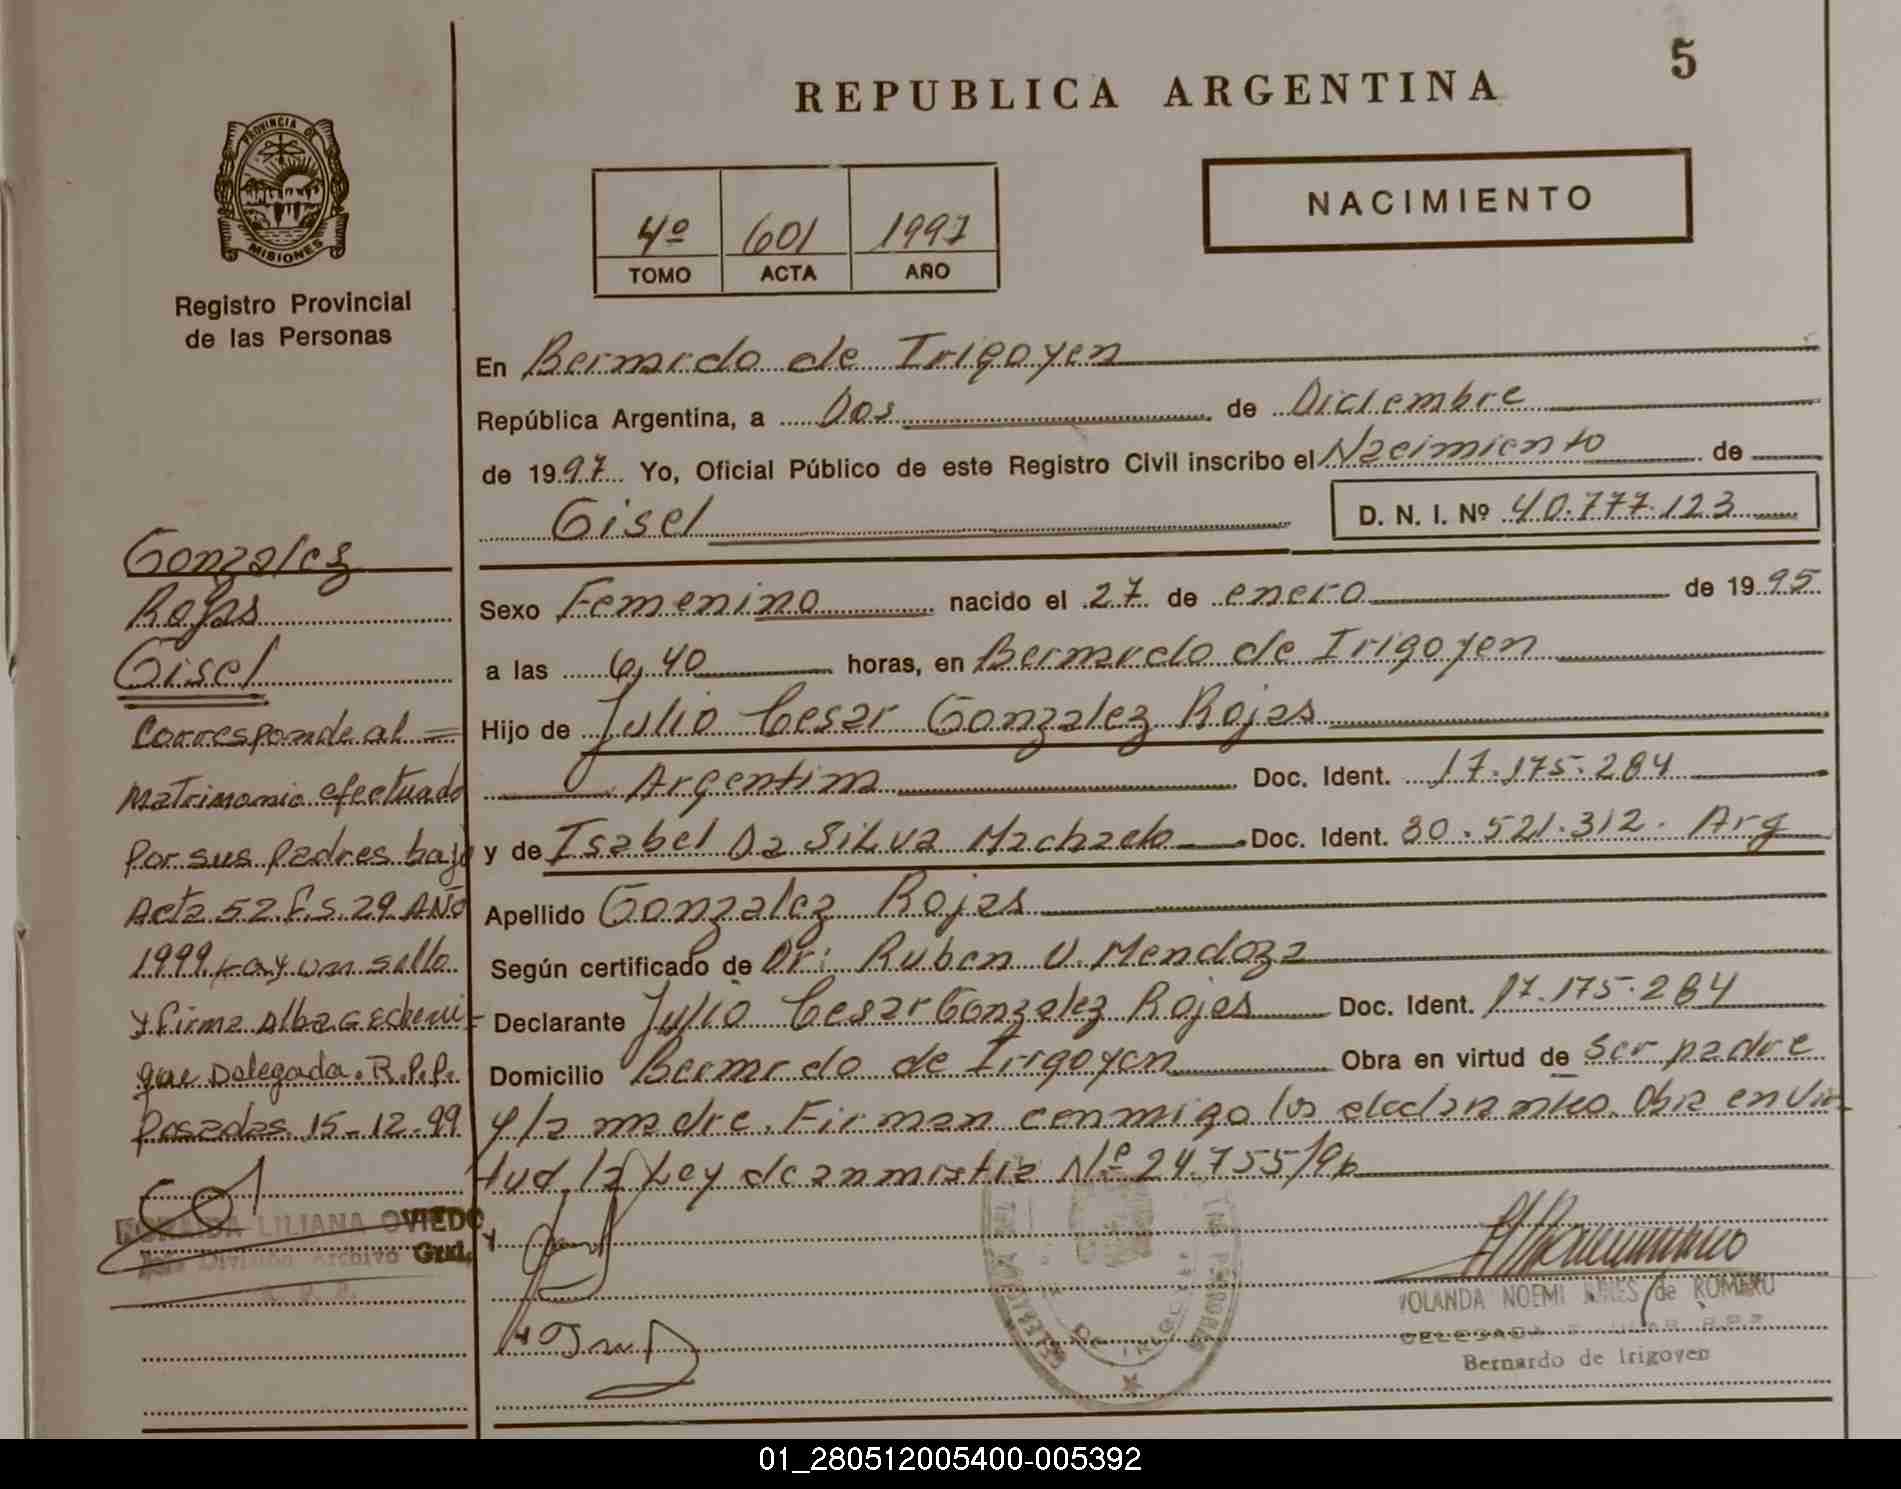 5
REPUBLICA ARGENTINA
PROVINCIA DE
MISIONES
Registro Provincial
de las Personas
4º 601 1997
TOMO ACTA AÑO
NACIMIENTO
En Bernardo de Irigoyen
República Argentina, a Dos de Diciembre
de 1997 Yo, Oficial Público de este Registro Civil inscribo el Nacimiento de
Gisel D. N. I. Nº 40.777.123
Sexo Femenino nacido el 27 de enero de 1995
a las 6,40 horas, en Bernardo de Irigoyen
Hijo de Julio Cesar Gonzalez Rojas
Argentina Doc. Ident. 17.175.284
y de Isabel Da Silva Machado Doc. Ident. 30.521.312. Arg
Apellido Gonzalez Rojas
Según certificado de Dr: Ruben V. Mendoza
Declarante Julio Cesar Gonzalez Rojas Doc. Ident. 17.175.284
Domicilio Bernardo de Irigoyen Obra en virtud de ser padre
y la madre. Firman conmigo los Obra en vir
tud la Ley de anmistia Nº 24.755/96
Gonzalez
Rojas
Gisel
Corresponde al =
Matrimonio efectuado
por sus padres bajo
Acta 52 f.s. 29 AÑO
1999 hay un sello
y firma Alba G Echeni-
que Delegada. R.P.P.
Posadas 15-12-99
LILIANA OVIEDO
División Archivo Gral.
YOLANDA NOEMI de ROMERO
DELEGADA R.P.P.
Bernardo de Irigoyen
01_280512005400-005392